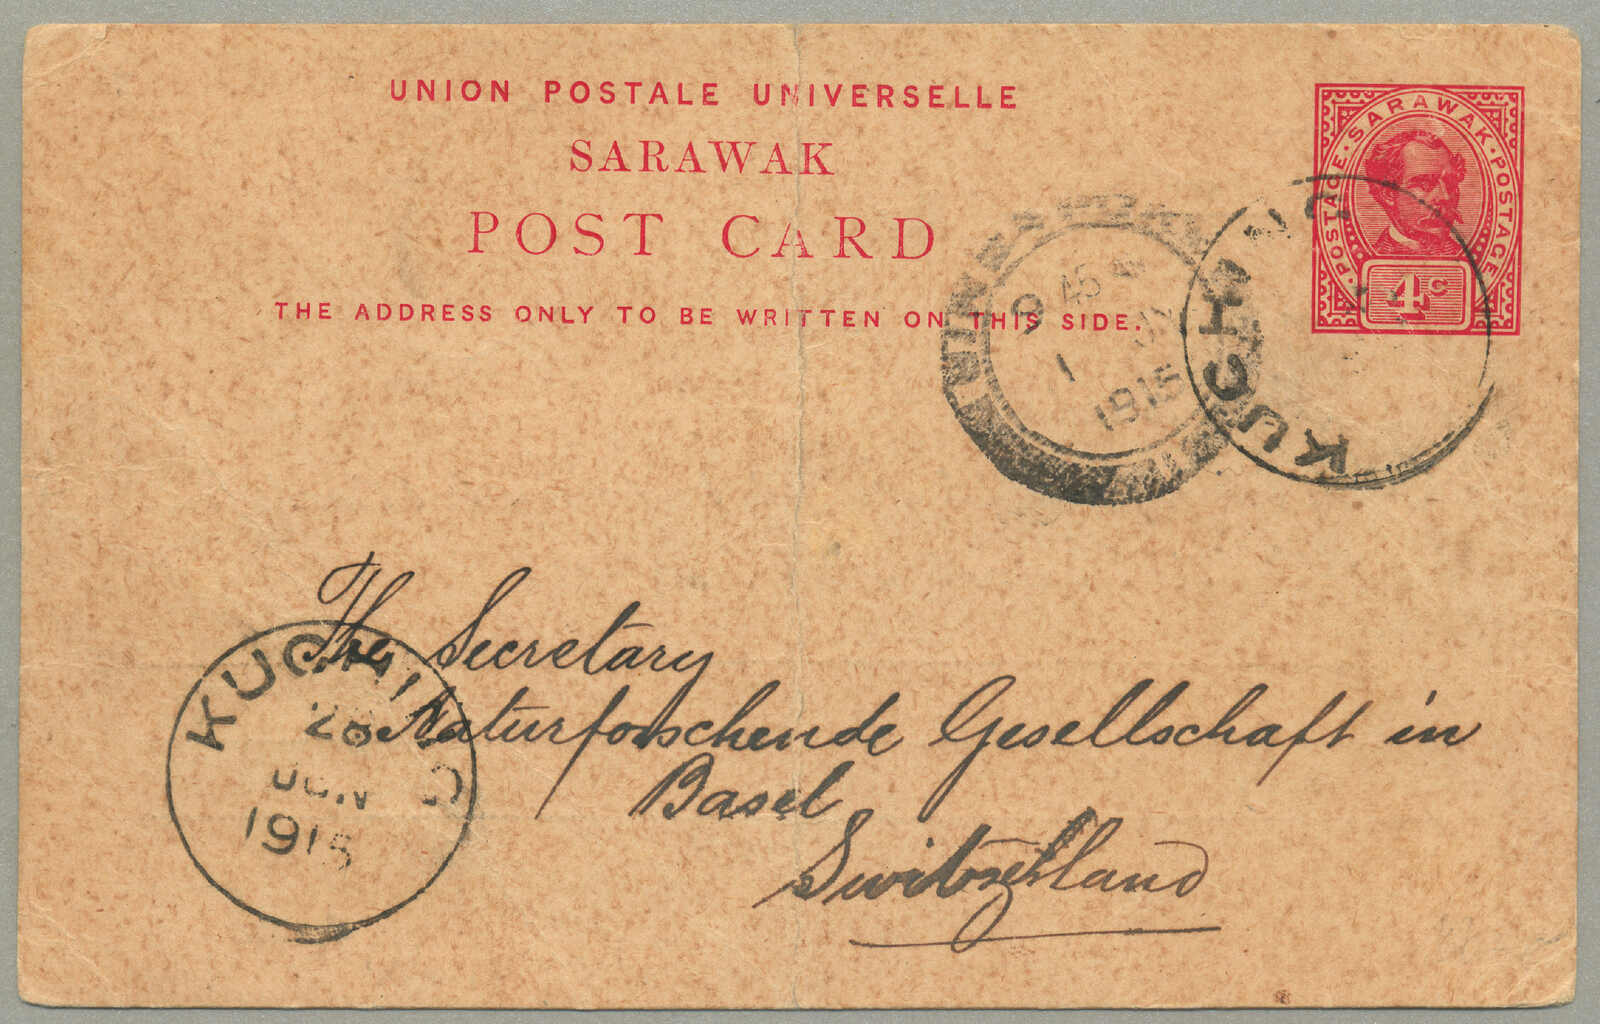 UNION POSTALE UNIVERSELLE
SARAWAK
POST CARD
THE ADDRESS ONLY TO BE WRITTEN ON THIS SIDE.
POSTAGE · SARAWAK · POSTAGE
4c
KUCHING
9 45
1
1915
The Secretary
Naturforschende Gesellschaft in
Basel
Switzerland
KUCHING
26
JUN
1915